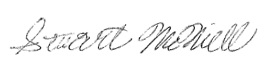 Stuart McNiell